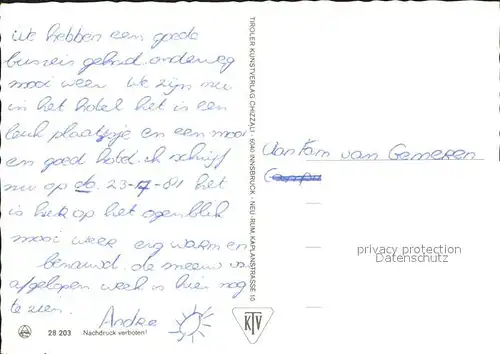 We hebben een goede
busreis gehad. onderweg
mooi weer We zijn nu
in het hotel het is een
leuk plaatsje en een mooi
en goed hotel. ik schrijf
nu op do. 23-7-81 het
is hier op het ogenblik
mooi weer erg warm en
benauwd. de sneeuw van
afgelopen week is hier nog
te zien.
Andre
28 203
Nachdruck verboten!
TIROLER KUNSTVERLAG CHIZZALI · 6040 INNSBRUCK - NEU-RUM, KAPLANSTRASSE 10
KTV
Aan Fam van Gemeren
privacy protection
Datenschutz